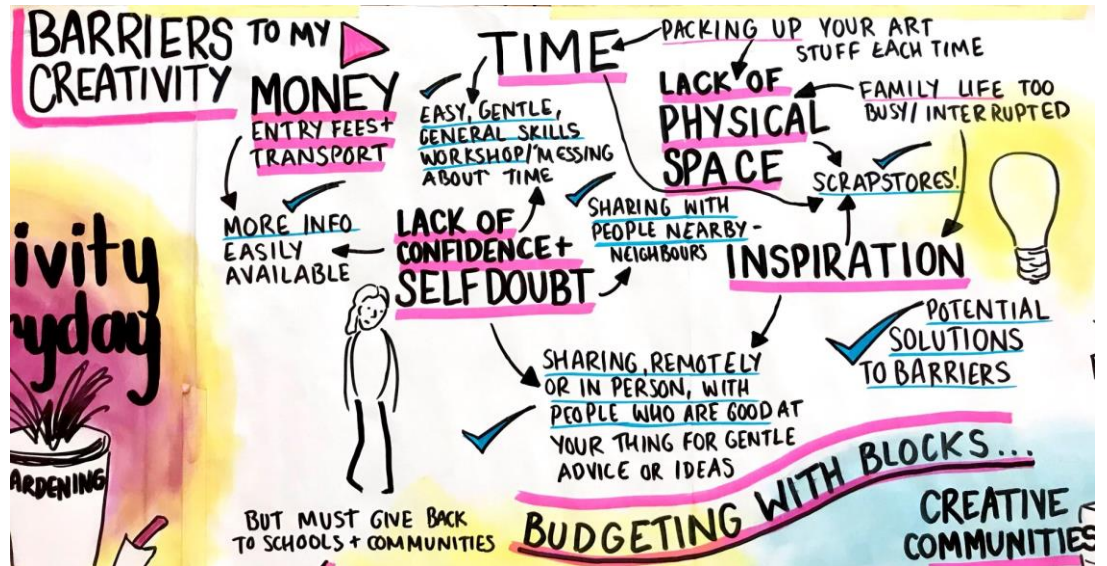 BARRIERS TO MY
CREATIVITY
MONEY
ENTRY FEES+
TRANSPORT
MORE INFO
EASILY
AVAILABLE
TIME
EASY, GENTLE,
GENERAL SKILLS
WORKSHOP/"MESSING
ABOUT TIME
PACKING UP YOUR ART
STUFF EACH TIME
LACK OF
PHYSICAL
SPACE
FAMILY LIFE TOO
BUSY/INTERRUPTED
SCRAPSTORES!
LACK OF
CONFIDENCE+
SELF DOUBT
SHARING WITH
PEOPLE NEARBY-
NEIGHBOURS
INSPIRATION
POTENTIAL
SOLUTIONS
TO BARRIERS
SHARING, REMOTELY
OR IN PERSON, WITH
PEOPLE WHO ARE GOOD AT
YOUR THING FOR GENTLE
ADVICE OR IDEAS
ivity
ryday
ARDENING
BUT MUST GIVE BACK
TO SCHOOLS + COMMUNITIES
BUDGETING WITH BLOCKS...
CREATIVE
COMMUNITIES